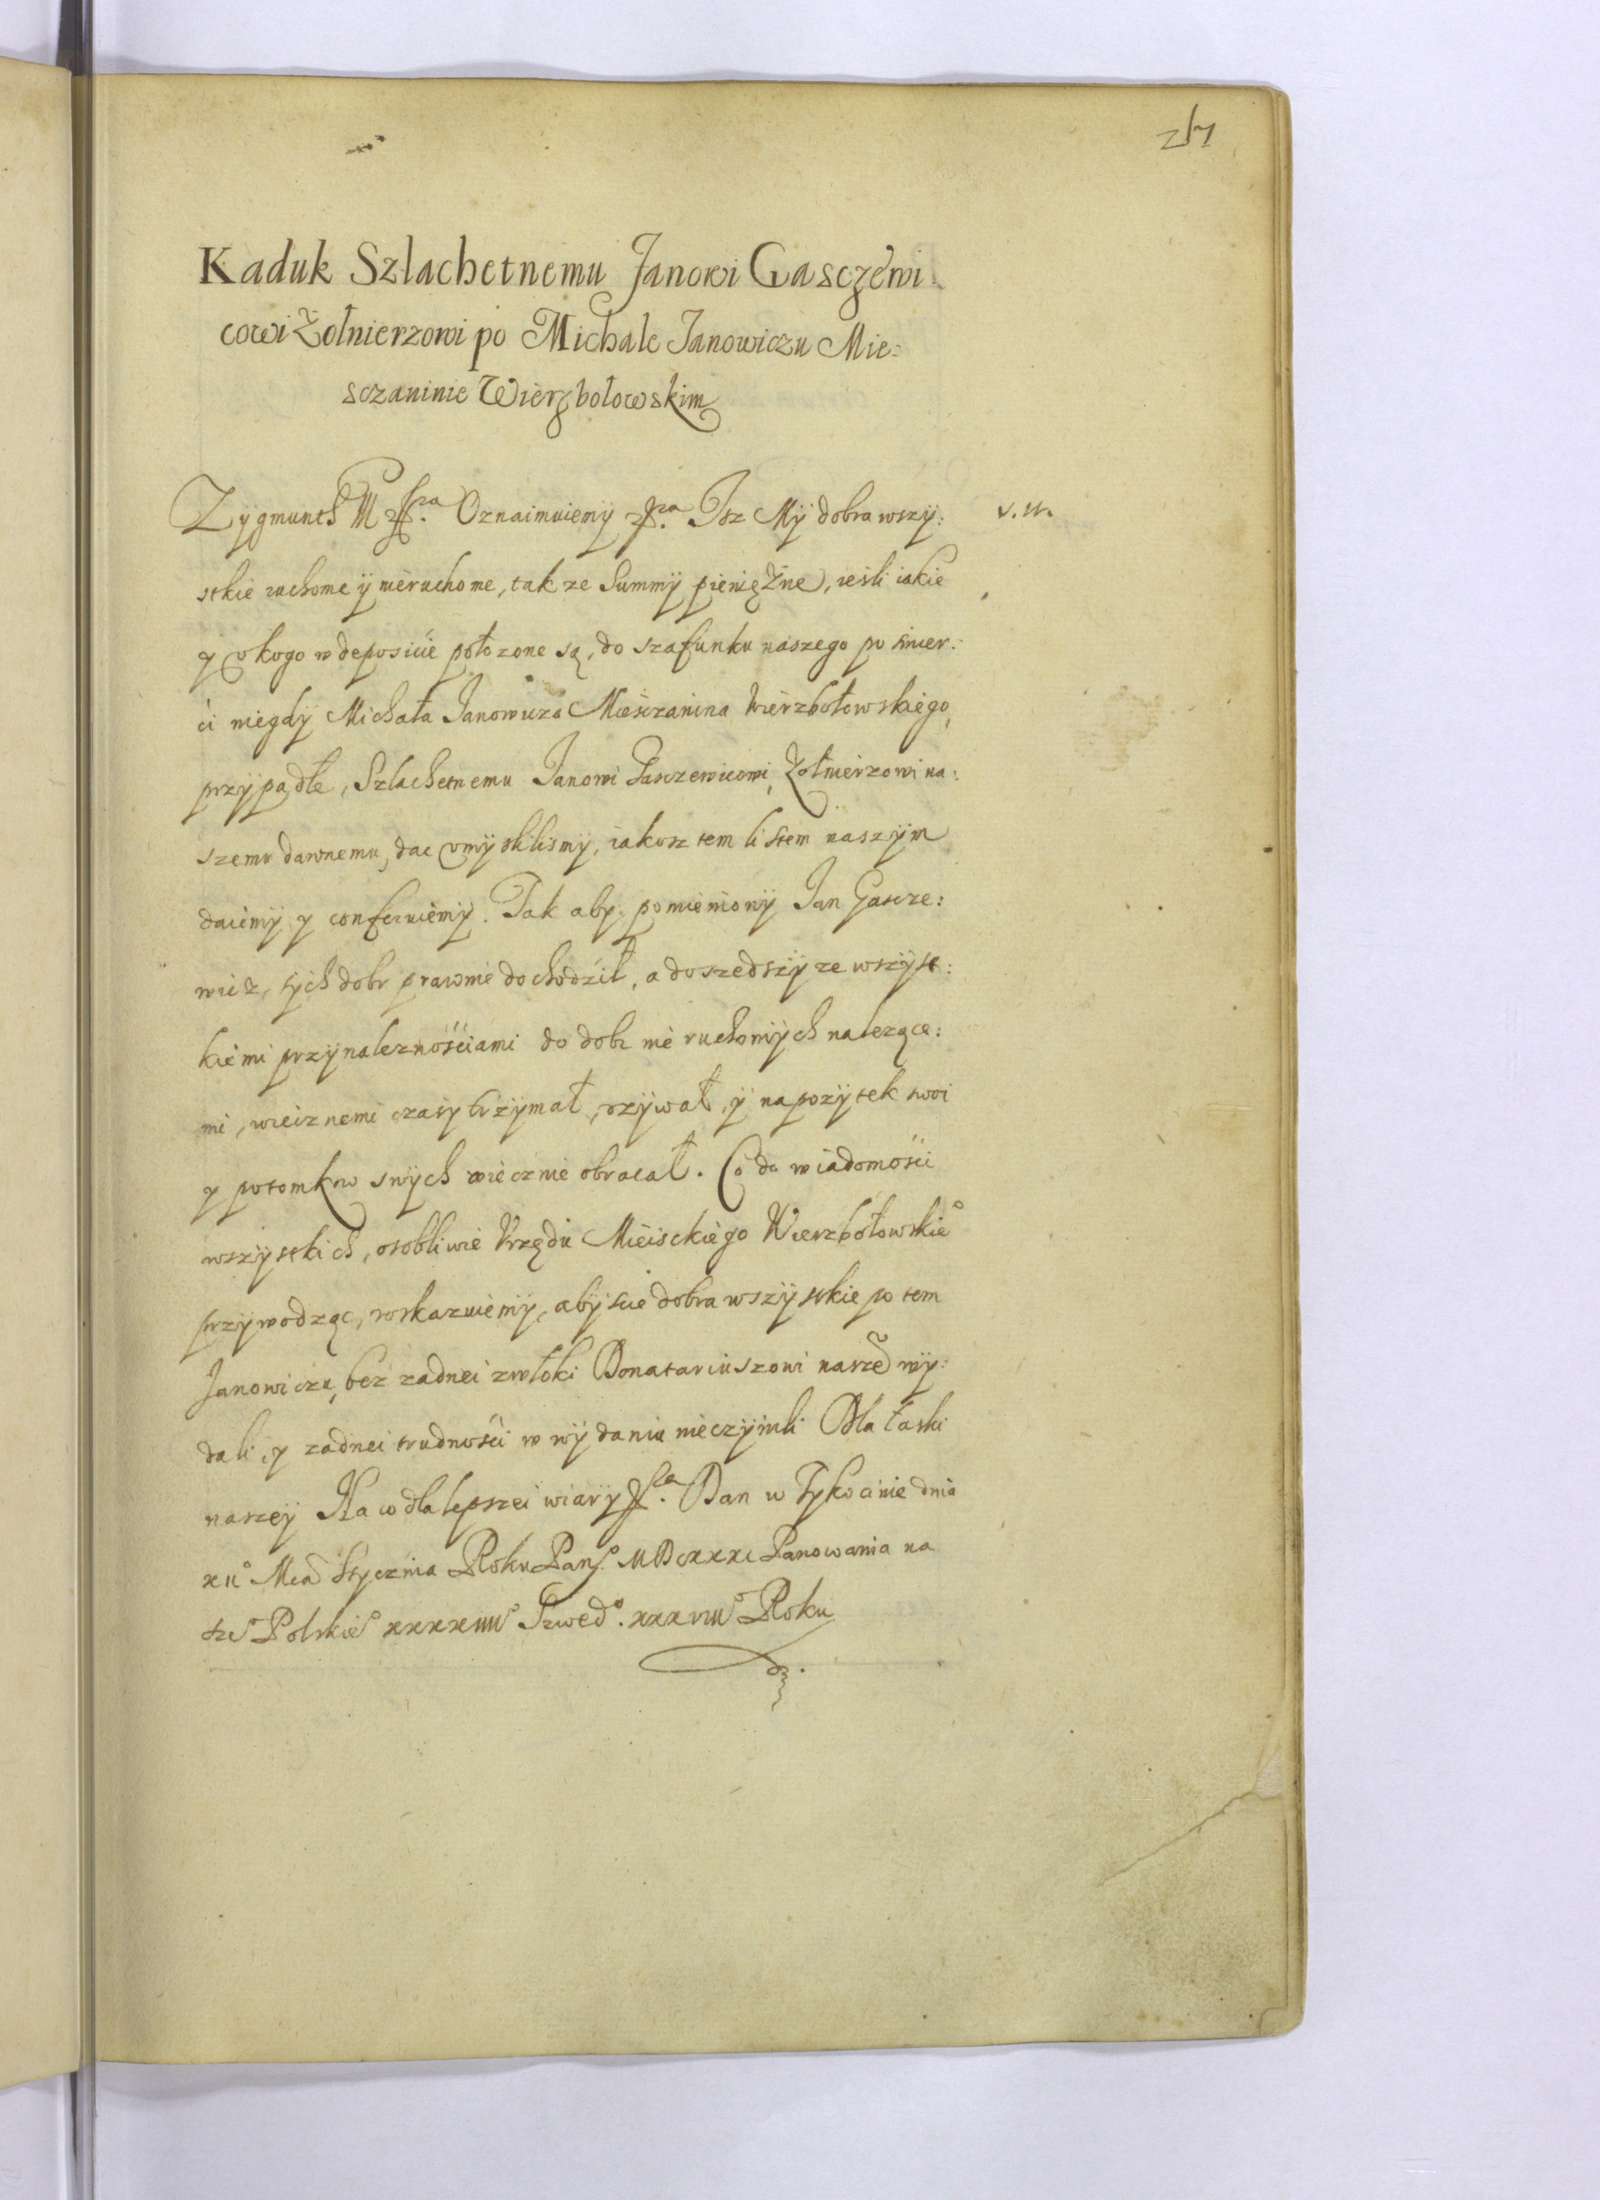 217
Kaduk Szlachetnemu Janowi Gasczewi
cowi Żołnierzowi po Michale Janowiczu Mie:
sczaninie Wierzbołowskim
Zygmunth III Oznaimuiemy Isz My dobra wszy:
stkie ruchome y nieruchome, tak ze Summy pieniężne, ieśli iakie
y v kogo w deposicie położone są, do szafunku naszego po śmier:
ći niegdy Michała Janowicza Miesczanina Wierzbołowskiego,
przypadłe, Szlachetnemu Janowi Gasczewicowi, Żołnierzowi na:
szemu dawnemu, dac vmysliliśmy, iakosz tem listem naszym
daiemy y conferuiemy. Tak aby pomieniony Jan Gascze:
wicz, tych dobr prawnie dochodził, a doszedszy ze wszyst:
kiemi przynależnościami do dobr nie ruchomych należące:
mi, wiecznemi czasy trzymał, vzywał, y na pozytek swoi
y potomkow swych wiecznie obracał. Co do wiadomości
wszystkich, osobliwie Vrzędu Mieisckiego Wierzbołowskie°
przywodząc, roskazuiemy, abyscie dobra wszystkie po tem
Janowiczu, bez zadnei zwłoki Donatariuszowi nasze° wy:
dali, y zadnei trudności w wydaniu nie czynili Dla łaski
naszey Na co dla lepszei wiary Dan w Tykocinie dnia
Stycznia Roku Pans° MDCXXXI Panowania na
sze° Polskie° xxxxiiii° Szwed°. xxxviii° Roku